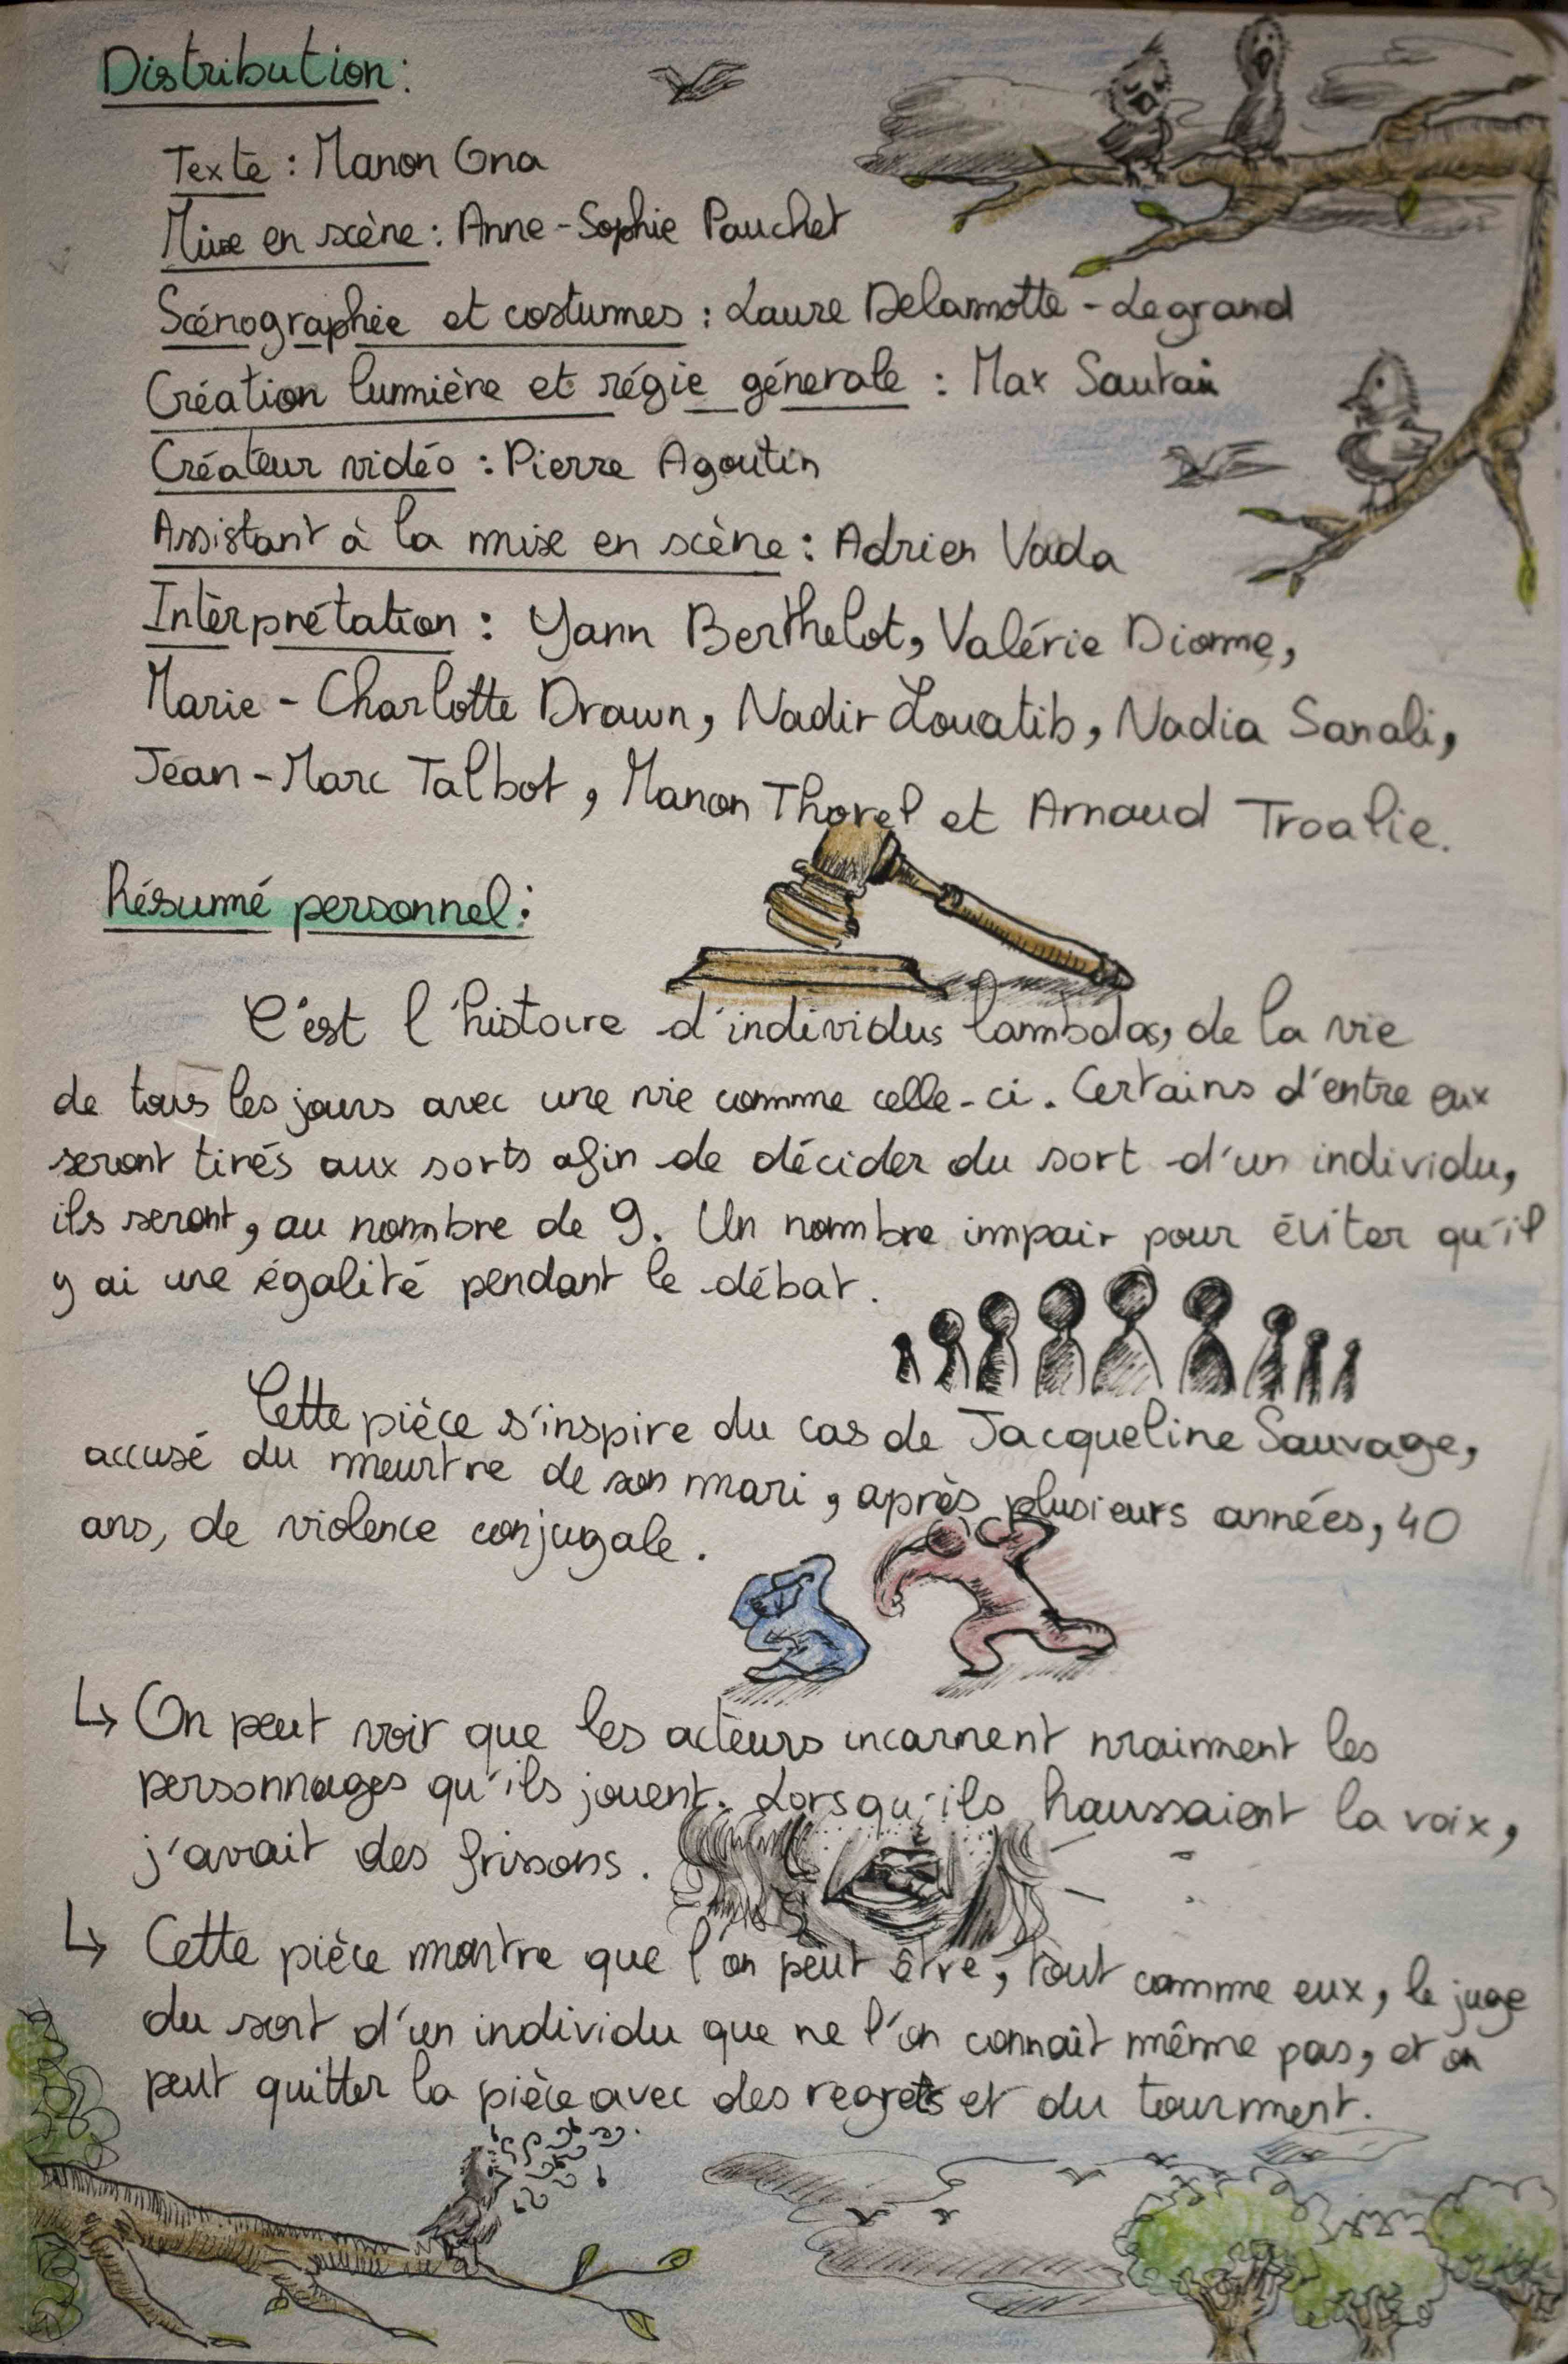 Distribution :
Texte : Manon Ona
Mise en scène : Anne-Sophie Pauchet
Scénographie et costumes : Laure Delamotte-Legrand
Création lumière et régie génerale : Max Sautai
Créateur vidéo : Pierre Agoutin
Assistant à la mise en scène : Adrien Vada
Intérprétation : Yann Berthelot, Valérie Diome,
Marie-Charlotte Drawn, Nadir Louatib, Nadia Sanali,
Jean-Marc Talbot, Manon Thorel et Arnaud Troalie.
Résumé personnel :
C'est l'histoire d'individus lambdas, de la vie
de tous les jours avec une vie comme celle-ci. Certains d'entre eux
seront tirés aux sorts afin de décider du sort d'un individu,
ils seront, au nombre de 9. Un nombre impair pour éviter qu'il
y ai une égalité pendant le débat.
Cette pièce s'inspire du cas de Jacqueline Sauvage,
accusé du meurtre de son mari, après plusieurs années, 40
ans, de violence conjugale.
↳ On peut voir que les acteurs incarnent vraiment les
personnages qu'ils jouent. Lorsqu'ils haussaient la voix,
j'avait des frissons.
↳ Cette pièce montre que l'on peut être, tout comme eux, le juge
du sort d'un individu que ne l'on connaît même pas, et on
peut quitter la pièce avec des regrets et du tourment.